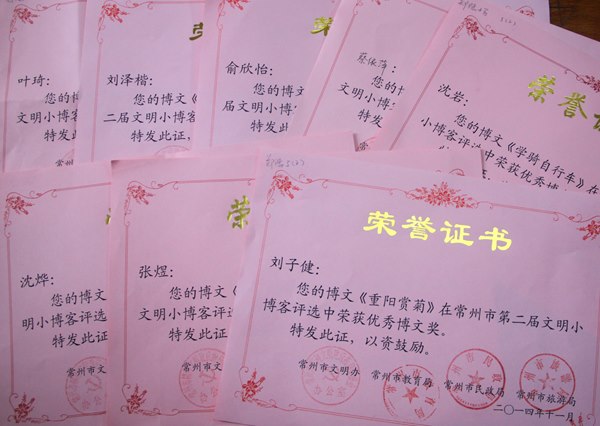 叶琦：
您的博文《
文明小博客
特发此证，
常州
荣
刘泽楷：
您的博文《
二届文明小博客
特发此证，
常
荣
俞欣怡：
您的博文《
届文明小博客
特发此证，
蔡依萍：
您的博文《
文明小博
特发
荣誉证
沈岩：
您的博文《学骑自行车》在
小博客评选中荣获优秀博
沈烨：
您的博文《
明小博客评选
特发此证，
常州市文
荣
张煜：
您的博文《
文明小博客评选
特发此证，
常州市文明
荣誉证书
刘子健：
您的博文《重阳赏菊》在常州市第二届文明小
博客评选中荣获优秀博文奖。
特发此证，以资鼓励。
常州市文明办 常州市教育局 常州市民政局 常州市旅游局
二〇一四年十一月